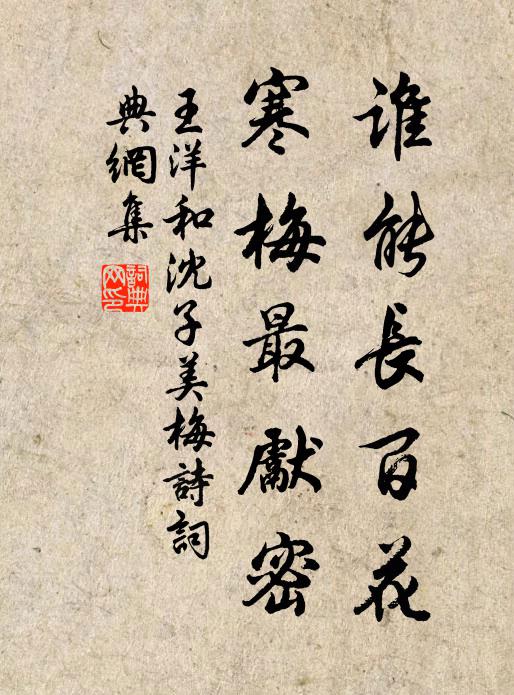 谁能長百花
寒梅最獻密
王洋和沈子美梅詩詞
典網集
詞典网印